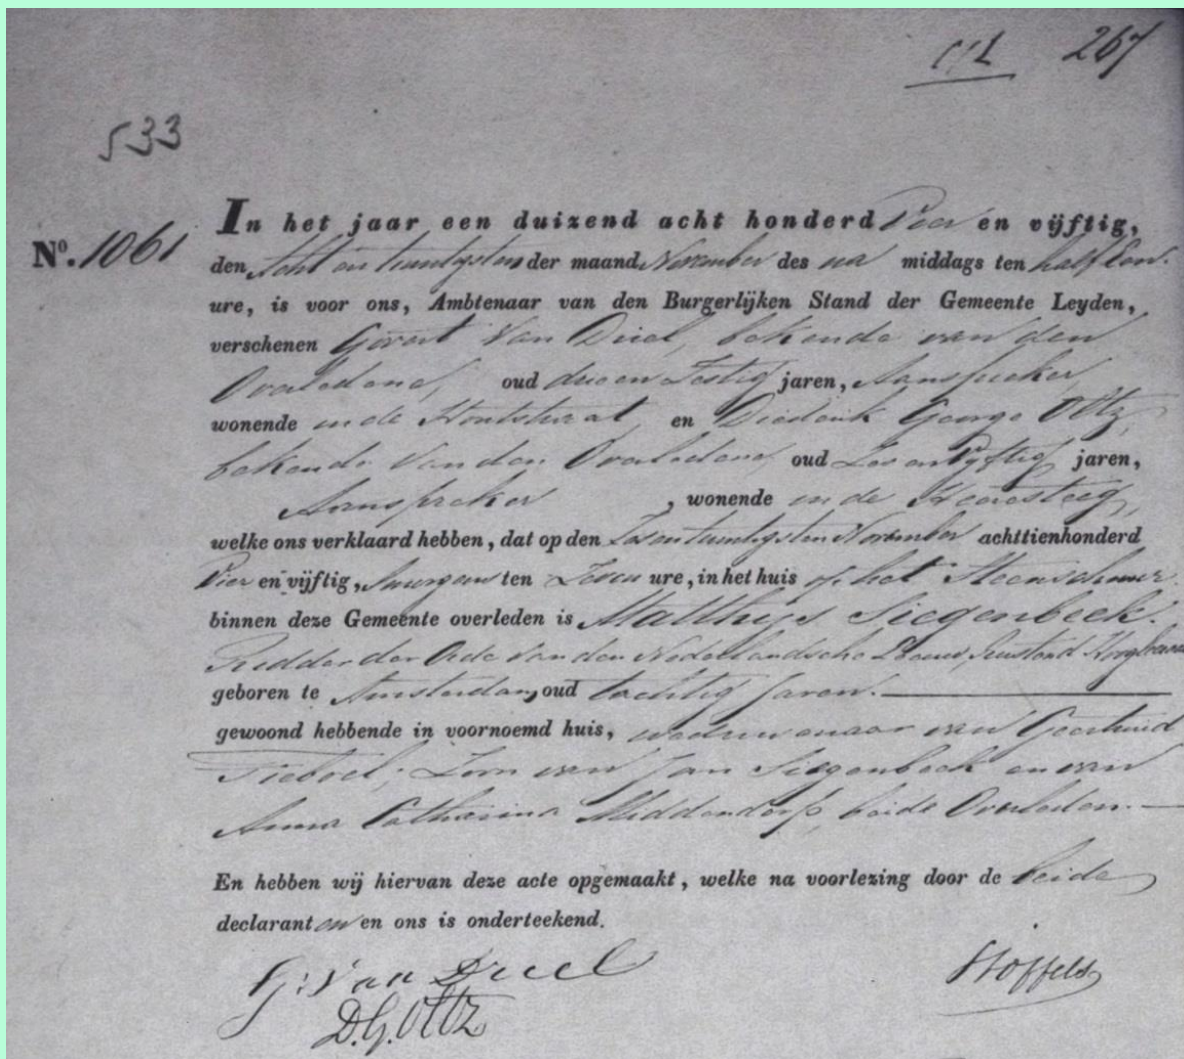 267
533
N°. 1061
In het jaar een duizend acht honderd Vier en vijftig,
den Acht en twintigsten der maand November des na middags ten half Een
ure, is voor ons, Ambtenaar van den Burgerlijken Stand der Gemeente Leyden,
verschenen Govert Van Driel, bekende van den
Overledene, oud drie en Zestig jaren, Aanspreker,
wonende in de Houtstraat, en Diederik George Ottz,
bekende van den Overledene, oud Zes en Vyftig jaren,
Aanspreker, wonende in de
welke ons verklaard hebben, dat op den Zes en twintigsten November achttienhonderd
Vier en vijftig, smorgens ten Zeven ure, in het huis op het Steenschuur
binnen deze Gemeente overleden is Matthijs Siegenbeek.
Ridder der Orde van den Nederlandsche Leeuw, rustend Hoogleraar
geboren te Amsterdam, oud tachtig Jaren.
gewoond hebbende in voornoemd huis, weduwenaar van Geertruid
Tieboel, Zoon van Jan Siegenbeek en van
Anna Catharina Middendorp, beide Overleden.
En hebben wij hiervan deze acte opgemaakt, welke na voorlezing door de beide
declaranten en ons is onderteekend.
G. Van Driel
Stoffels
D.G. Ottz